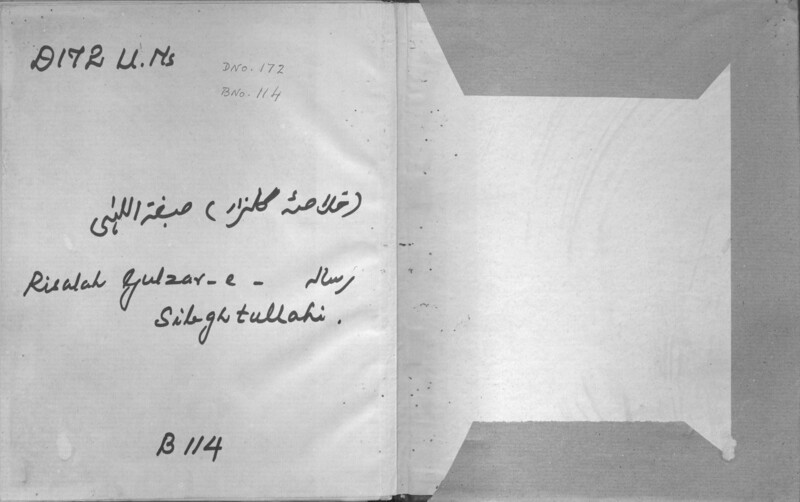 D172 U.Ms
DNo. 172
BNo. 114
(خلاصۂ گلزار) صبغۃ اللہٰی
Risalah Gulzar-e- رسالہ
Sibghtullahi.
B 114